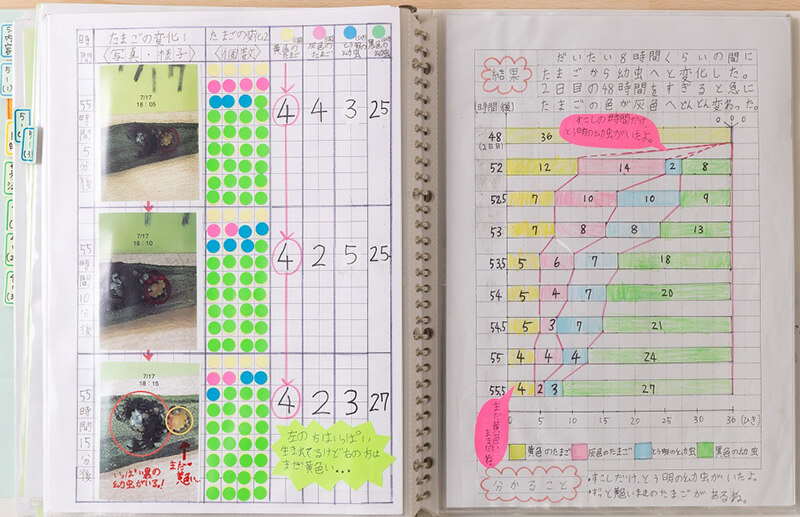 たまごの変化1
〈写真・様子〉
たまごの変化2
〈個数〉
時間
黄色のたまご
灰色のたまご
とう明の幼虫
黒色の幼虫
55時間5分後
7/17
18:05
4 4 3 25
55時間10分後
7/17
18:10
4 2 5 25
55時間15分後
7/17
18:15
いっぱい黒の
幼虫がいる!
まだ
4 2 3 27
左の方はいっぱい
生まれてるけど右の方は
まだ黄色い…
結果
だいたい8時間くらいの間に
たまごから幼虫へと変化した。
2日目の48時間をすぎると急に
たまごの色が灰色へどんどん変わった。
(時間後)
すこしの時間だけ
とう明の幼虫がいたよ。
0 0 0
48 36
(2日目)
52 12 14 2 8
52.5 7 10 10 9
53 7 8 8 13
53.5 5 6 7 18
54 5 4 7 20
54.5 5 3 7 21
55 4 4 4 24
55.5 4 2 3 27
0 5 10 15 20 25 30 36 (ひき)
黄色のたまご 灰色のたまご とう明の幼虫 黒色の幼虫
分かること
・すこしだけ、とう明の幼虫がいたよ。